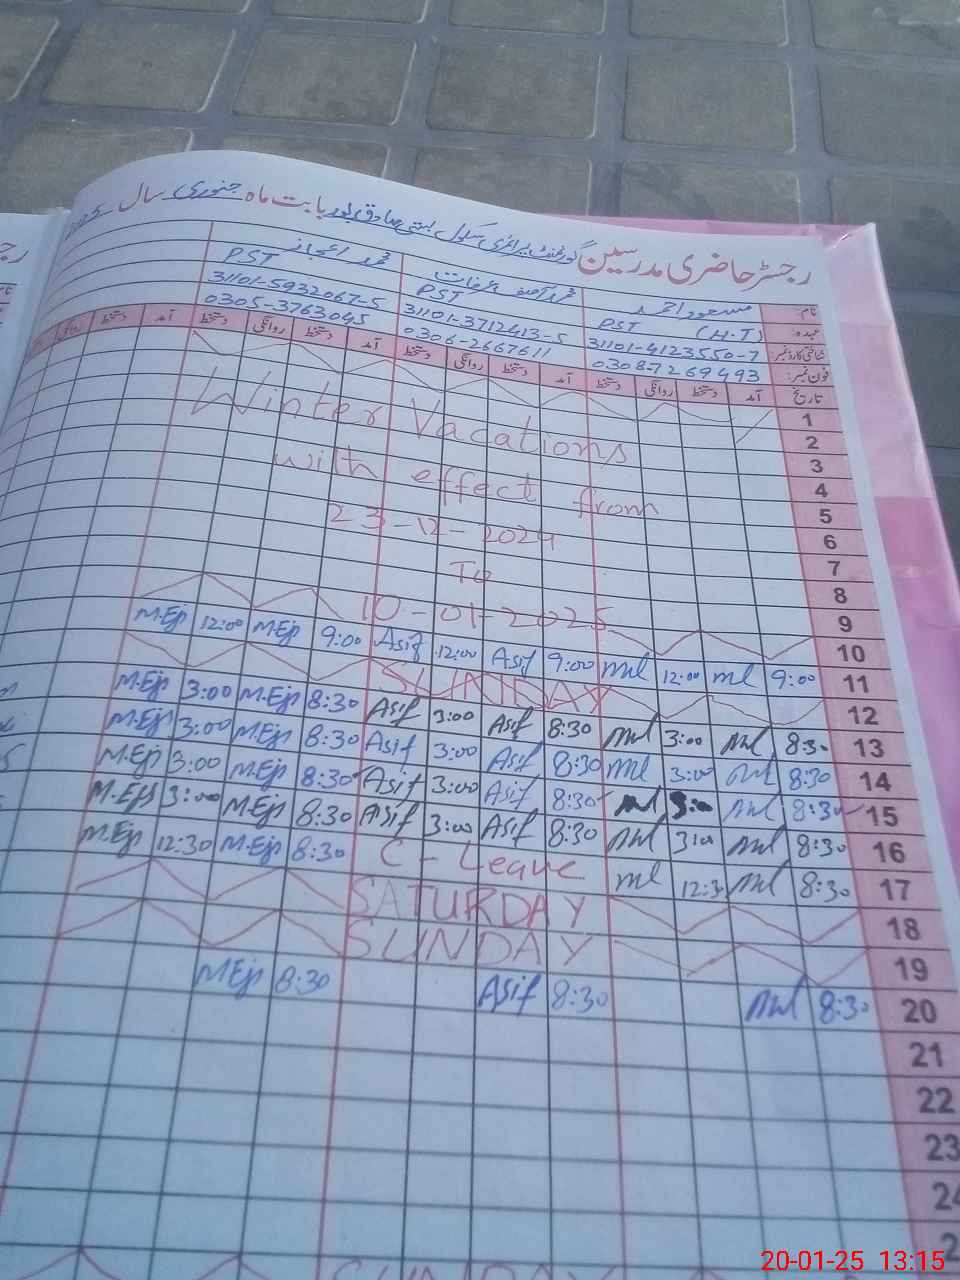 رجسٹر حاضری مدرسین گورنمنٹ پرائمری سکول بستی صادق پور بابت ماہ جنوری سال
نام: مسعود احمد محمد آصف عرفات محمد اعجاز
عہدہ: PST (H.T) PST PST
شناختی کارڈ نمبر: 31101-4123550-7 31101-3712413-5 31101-5932067-5
فون نمبر: 0308-7269493 0306-2667611 0305-3763045
تاریخ آمد دستخط روانگی دستخط آمد دستخط روانگی دستخط آمد دستخط روانگی دستخط آمد دستخط روانگی
1
2
Winter Vacations
3
4
with effect from
5
6
23-12-2024
7
To
8
9
10-01-2025
10
M.Ejj 12:00 M.Ejj 9:00 Asif 12:00 Asif 9:00 ml 12:00 ml 9:00 11
SUNDAY 12
M.Ejj 3:00 M.Ejj 8:30 Asif 3:00 Asif 8:30 ml 3:00 ml 8:30 13
M.Ejj 3:00 M.Ejj 8:30 Asif 3:00 Asif 8:30 ml 3:00 ml 8:30 14
M.Ejj 3:00 M.Ejj 8:30 Asif 3:00 Asif 8:30 ml 3:00 ml 8:30 15
M.Ejj 3:00 M.Ejj 8:30 Asif 3:00 Asif 8:30 ml 3:00 ml 8:30 16
M.Ejj 12:30 M.Ejj 8:30 C-Leave ml 12:3 ml 8:30 17
SATURDAY 18
SUNDAY 19
M.Ejj 8:30 Asif 8:30 ml 8:30 20
21
22
23
24
2
SUNDAY
20-01-25 13:15